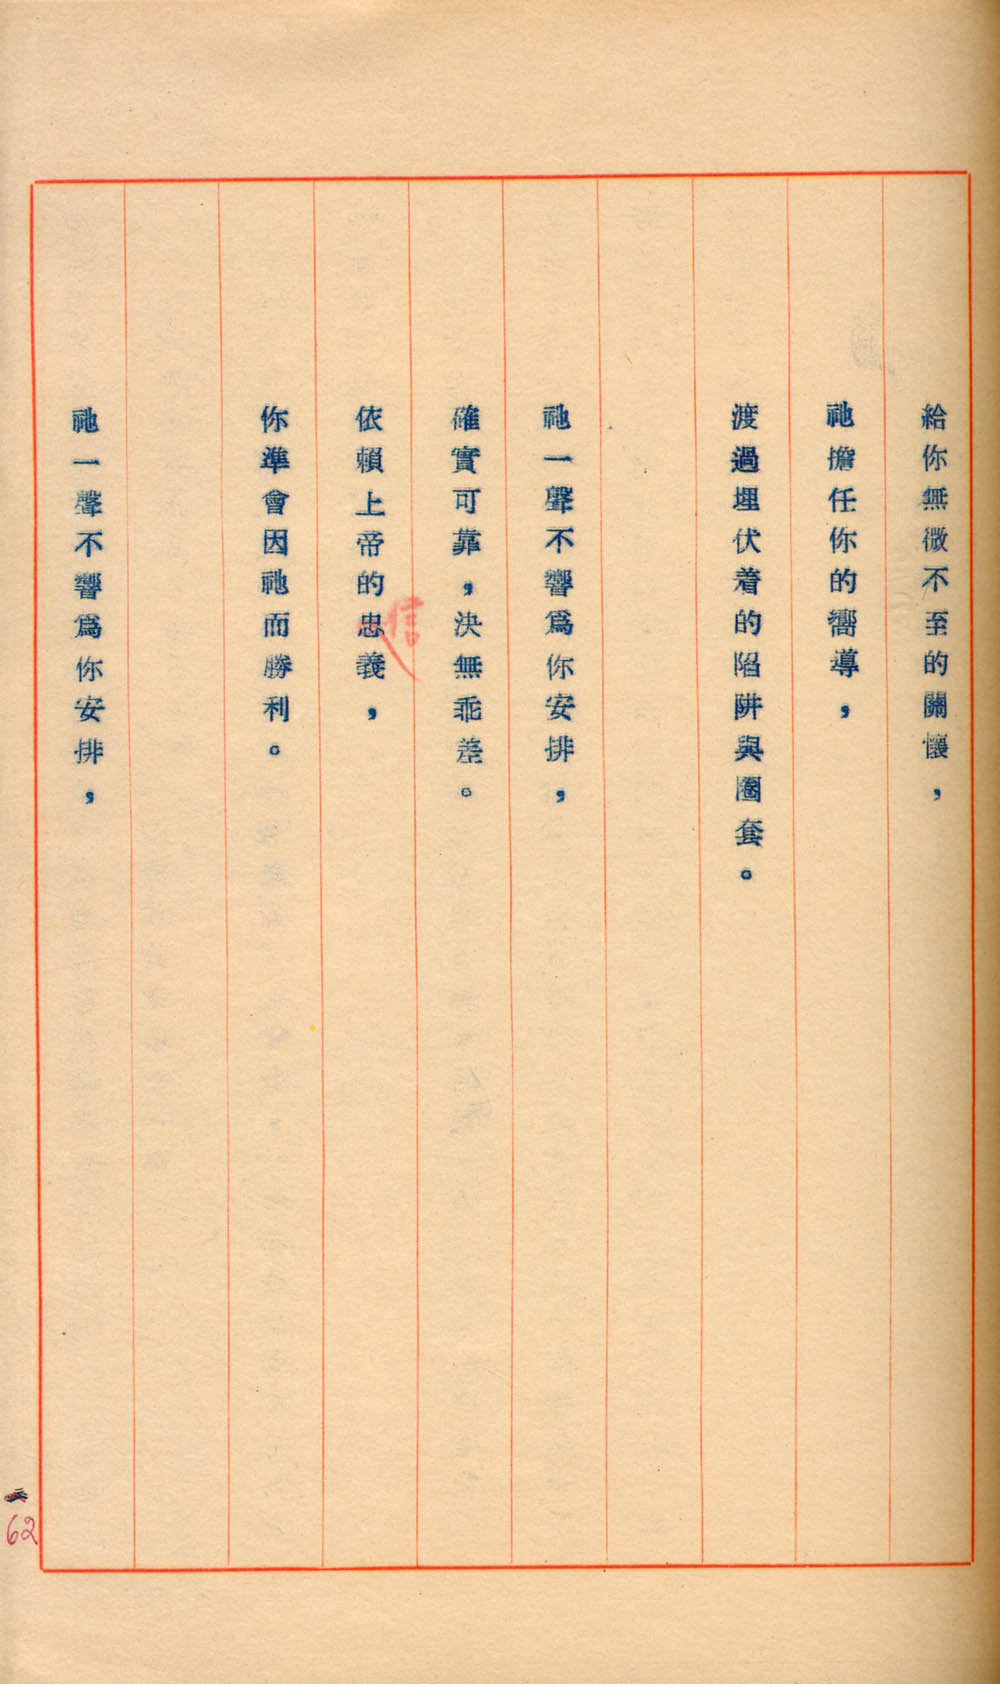 給你無微不至的關懷，
祂擔任你的嚮導，
渡過埋伏着的陷阱與圈套。
祂一聲不響爲你安排，
確實可靠，決無乖差。
依賴上帝的忠義，
信
你準會因祂而勝利。
祂一聲不響爲你安排，
62